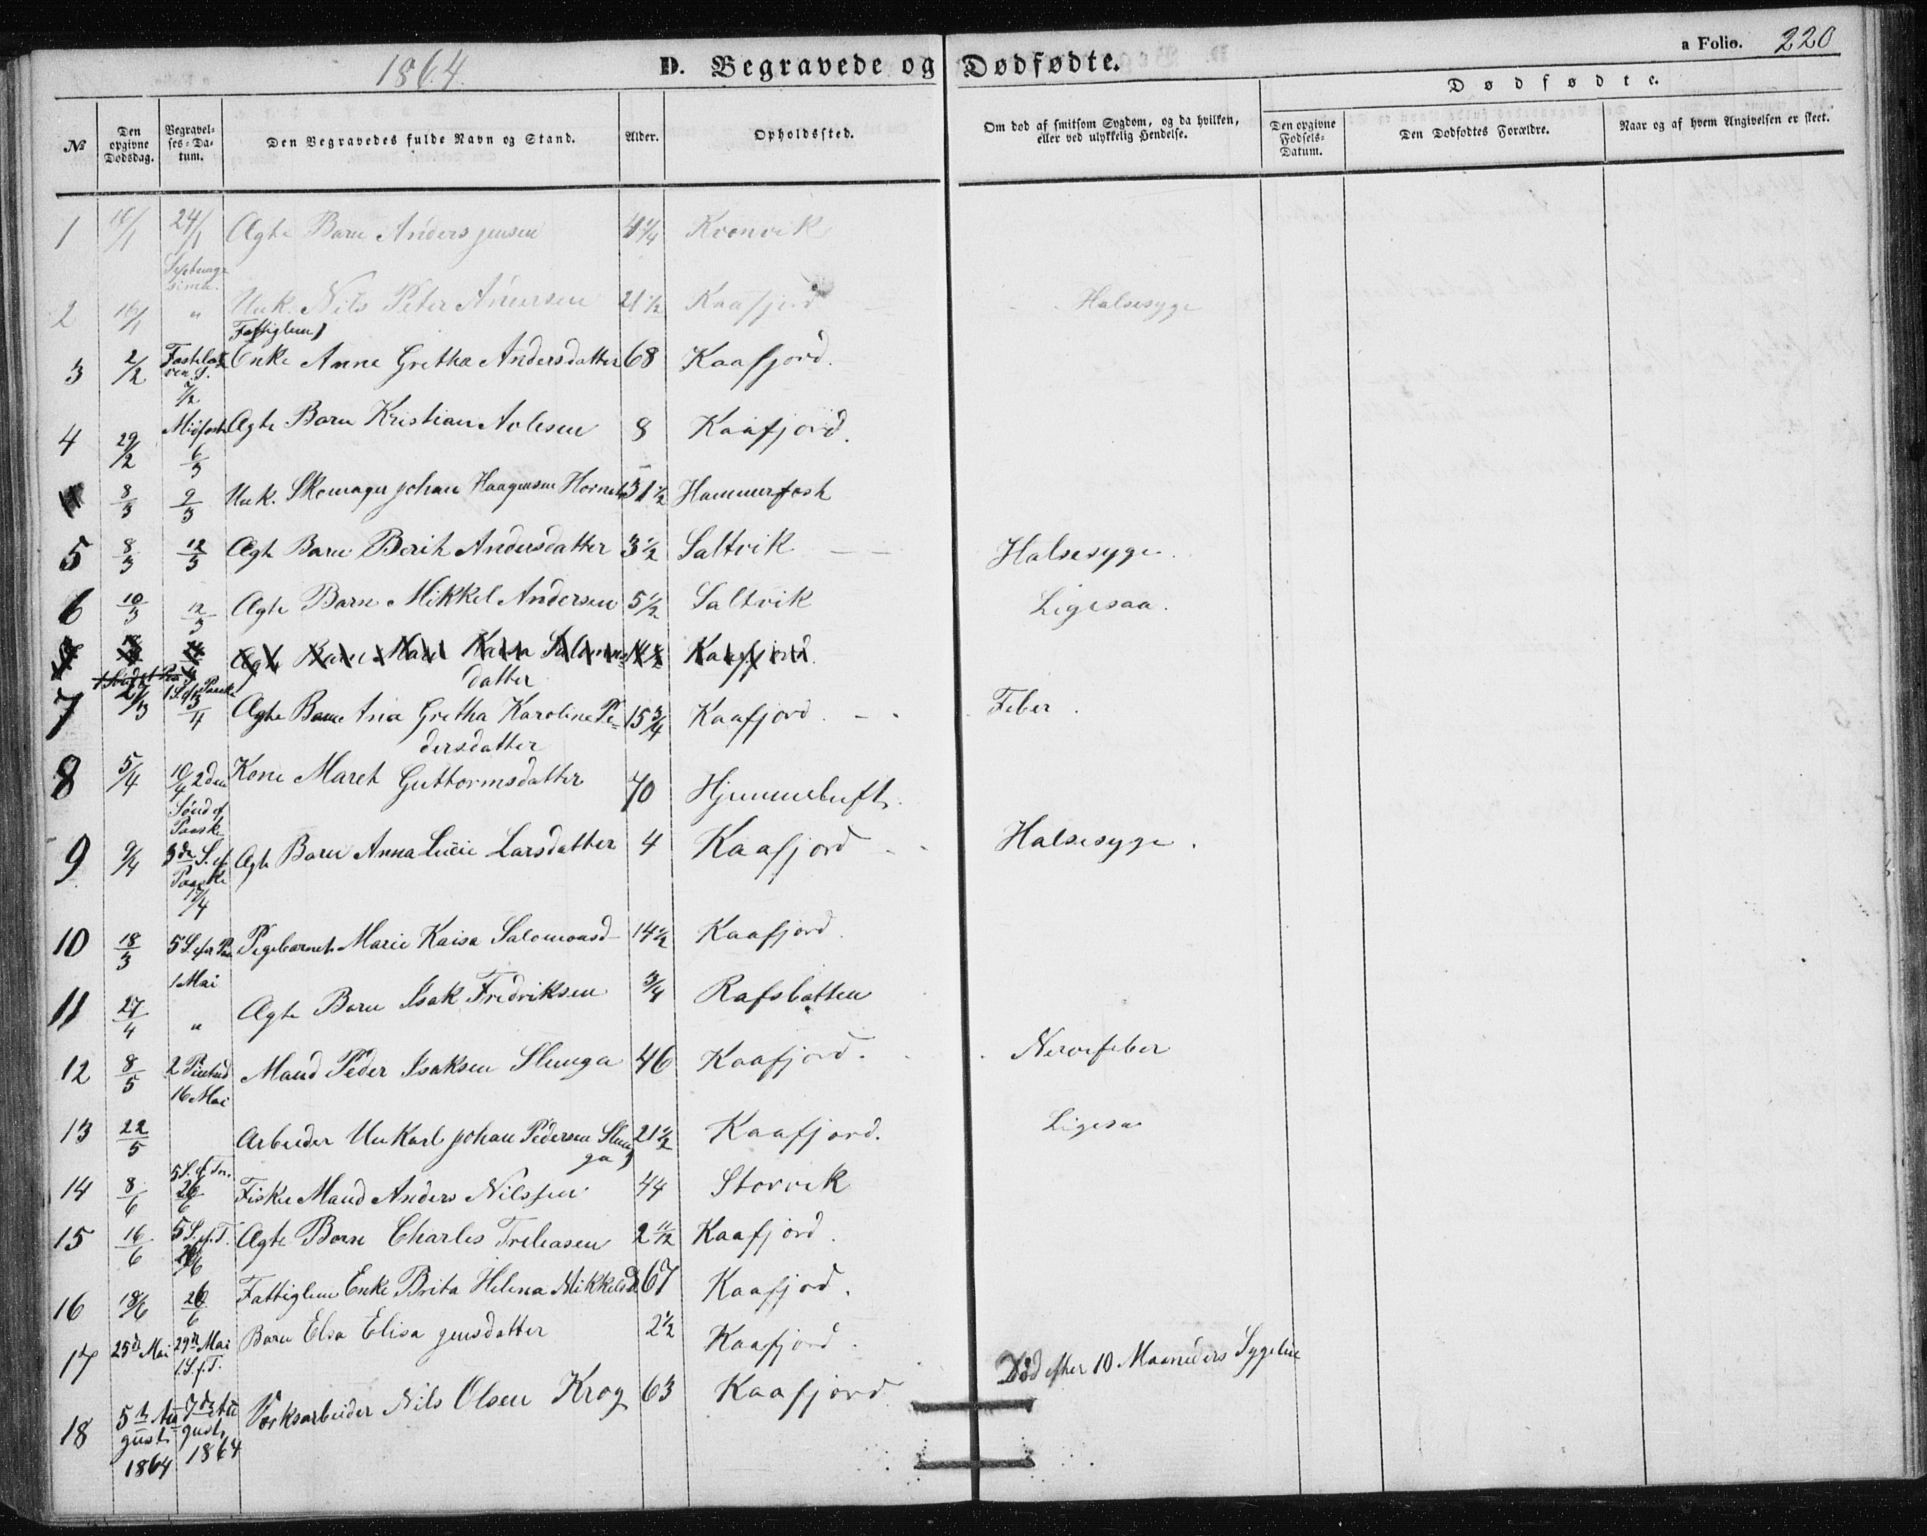 1864
D. Begravede og Dødfødte.
a Folio. 220
Dødfødte.
No
Den opgivne Dødsdag.
Begravelses-Datum.
Den Begravedes fulde Navn og Stand.
Alder.
Opholdssted.
Om død af smitsom Sygdom, og da hvilken, eller ved ulykkelig Hendelse.
Den opgivne Fødsels-Datum.
Den Dødfødtes Forældre.
Naar og af hvem Angivelsen er skeet.
1 16/1 24/1 Ægte Barn Anders Jensen 4 1/4 Kvenvik
Septuagesima.
2 16/1 " Unk. Nils Peter Andersen 21 1/2 Kaafjord - - Halsesyge
Fattiglem)
3 2/2 Fastelavens S. 7/2 Enke Anne Gretha Andersdatter 68 Kaafjord.
4 29/2 Midfaste 6/3 Ægte Barn Kristian Aolesen 8 Kaafjord.
8/3 9/3 Unk. Skomager Johan Haagensen 31 1/2 Hammerfest
5 8/3 12/3 Ægte Barn Berit Andersdatter 3 1/2 Saltvik - - Halsesyge.
6 10/3 12/3 Ægte Barn Mikkel Andersen 5 1/2 Saltvik Ligesaa.
Ægte Barn Mari Kaisa Salomonsdatter Kaafjord.
7 27/3 1 S. ef. Paaske 3/4 Ægte Barn Ana Gretha Karoline Pedersdatter 15 3/4 Kaafjord. - - Feber.
8 5/4 10/4 2den Sønd ef Paaske Kone Maret Guttormsdatter 70 Hjemmeluft.
9 9/4 3de S. ef. Paaske 17/4 Ægte Barn Anna Lucie Larsdatter 4 Kaafjord - - Halsesyge.
10 18/3 5 S. efter Paa Pigebarnet Marie Kaisa Salomonsd 14 1/2 Kaafjord.
1 Mai
11 27/4 " Ægte Barn Isak Fredriksen 3/4 Rafsbotten
12 8/5 2 Pintsd 16 Mai Mand Peder Isaksen Slunga 46 Kaafjord. - - Nervefeber
13 22/5 Arbeider Un Karl Johan Pedersen Slunga) 21 1/2 Kaafjord. Ligesaa
14 8/6 5 S. ef. Tr. 26/6 Fisker Mand Anders Nilssen 44 Storvik
15 16/6 5 S. ef. T. 26/6 Ægte Barn Charles Treleasen 2 11/12 Kaafjord.
16 18/6 26/6 Fattiglem Enke Brita Helena Mikkelsd 67 Kaafjord.
17 25de Mai 29de Mai 1 S. f. T. Barn Elsa Elisa Jensdatter 2 1/2 Kaafjord.
18 5te August 1864 7de August 1864 Værksarbeider Nils Olsen Krog 63 Kaafjord Død efter 10 Maaneders Sygeleie